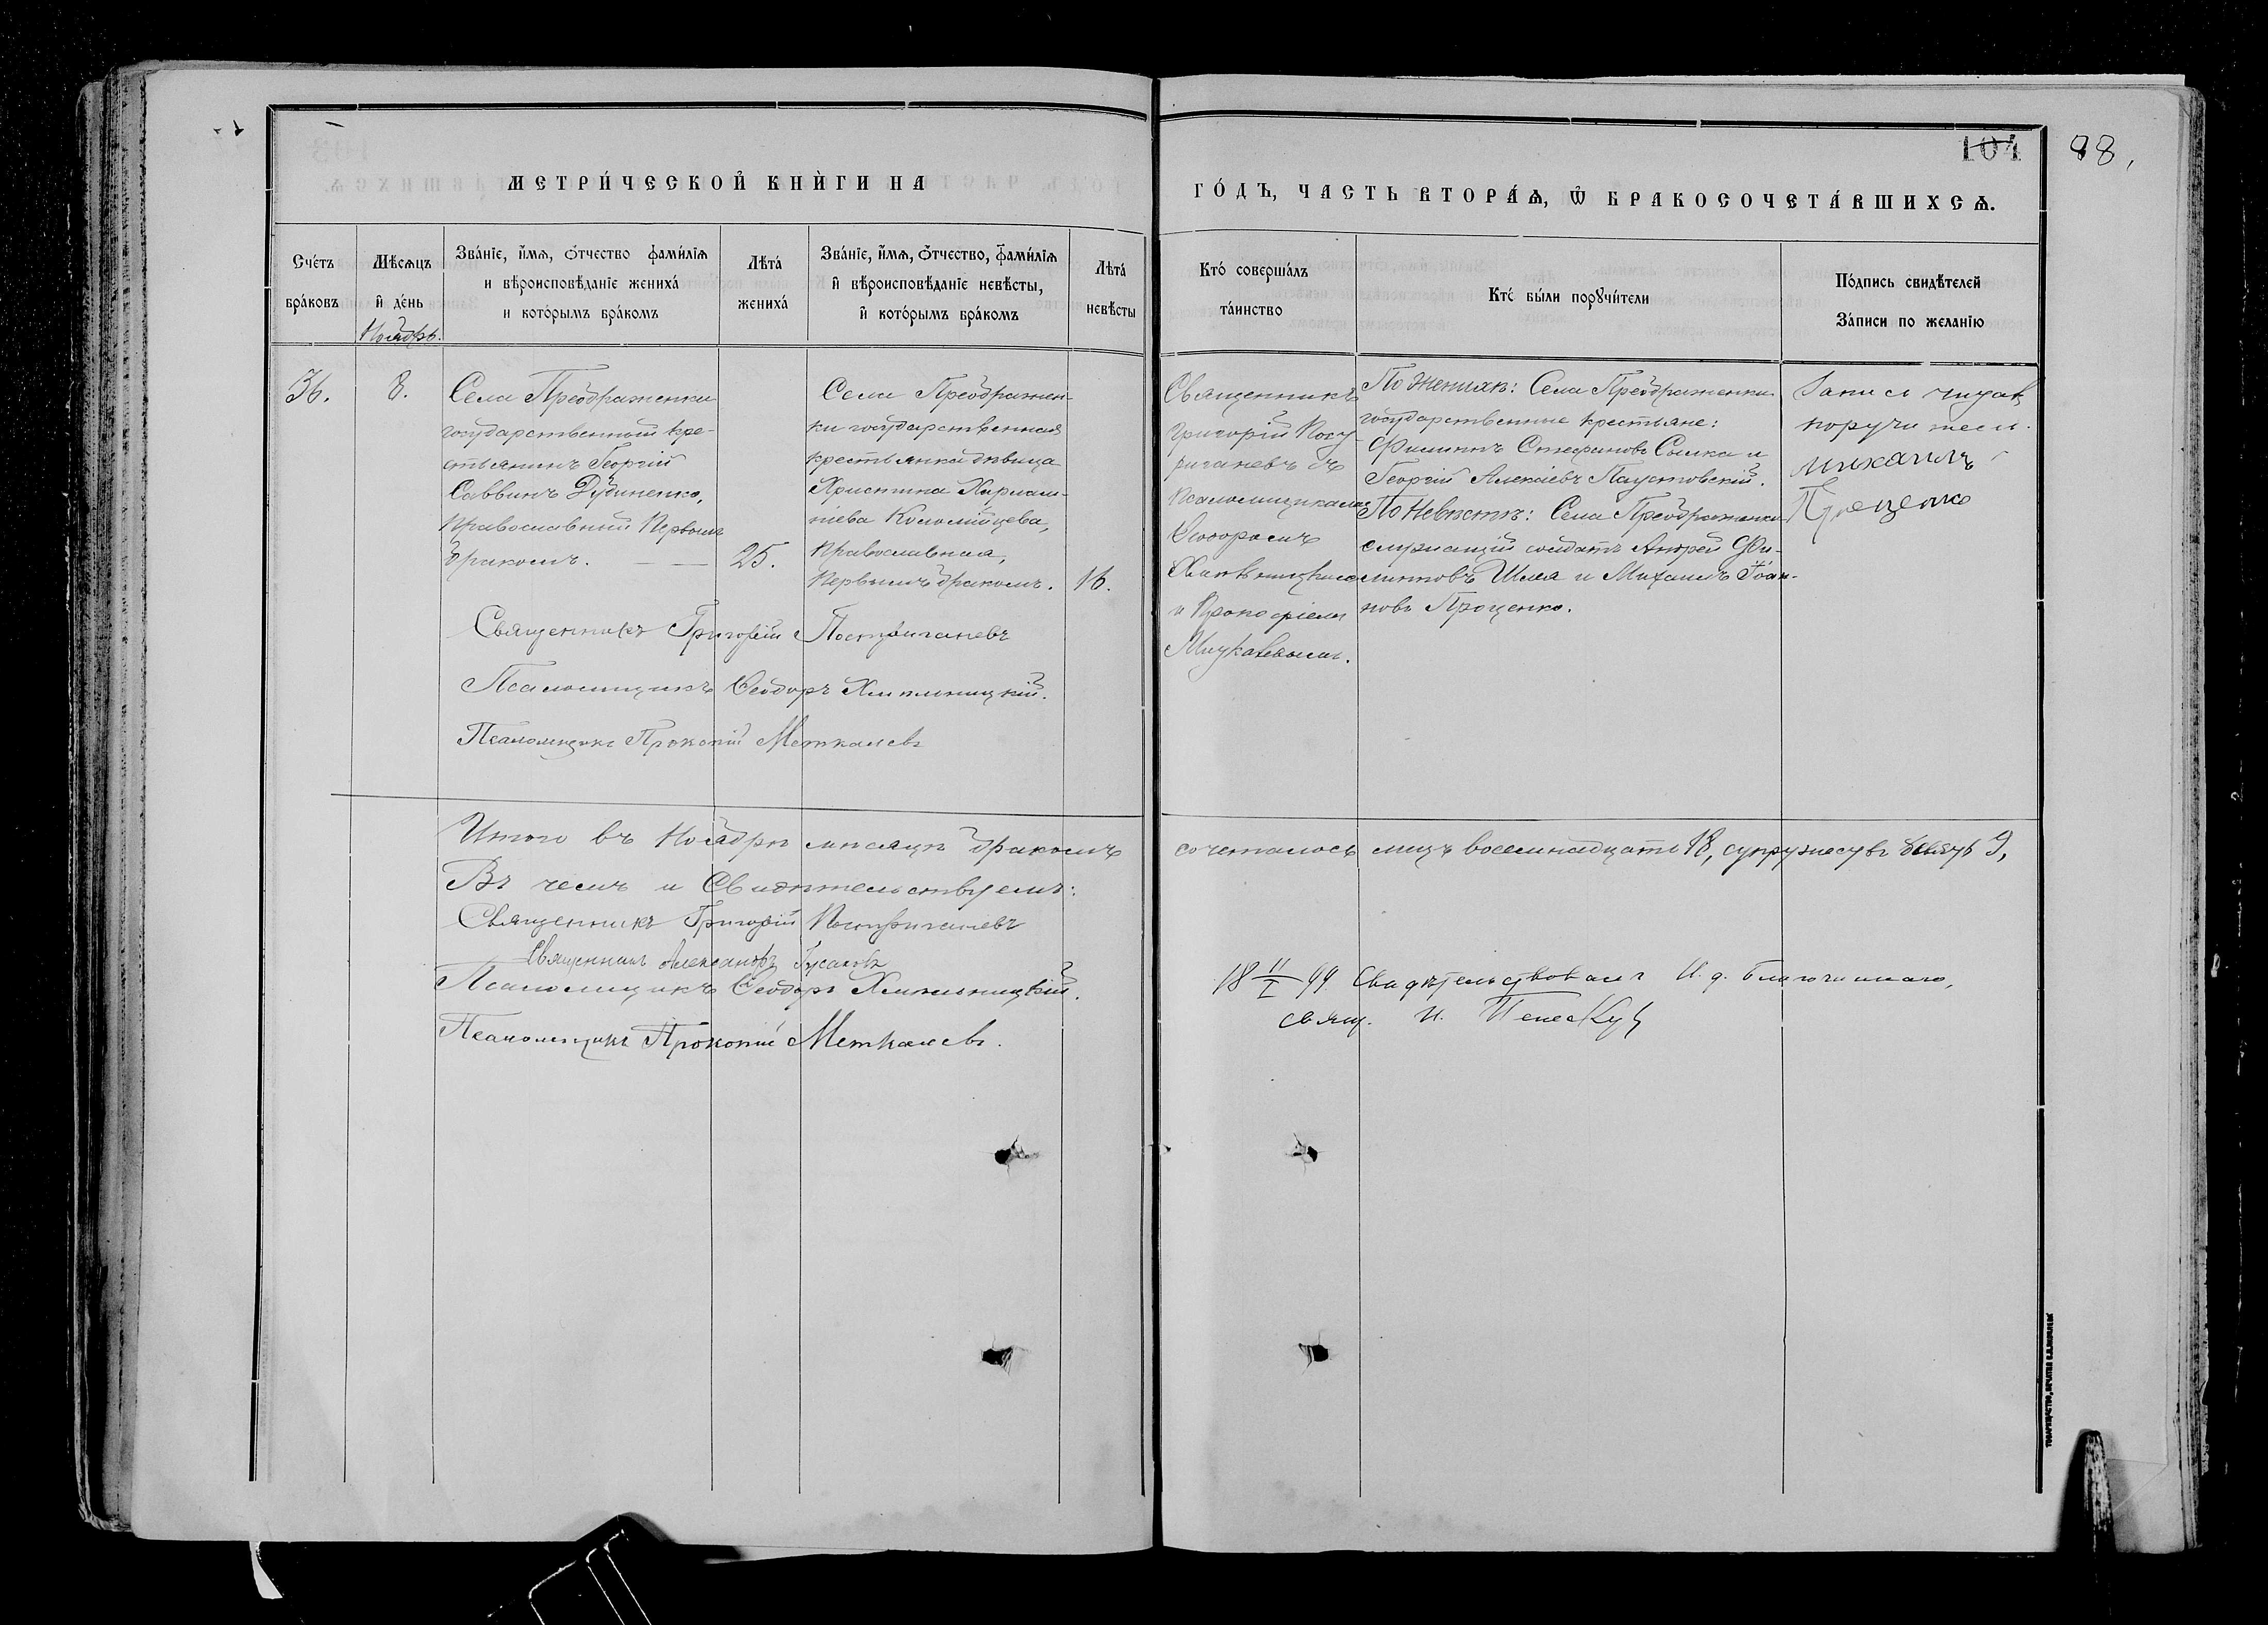 МЕТРИ́ЧЕСКОЙ КНИ́ГИ НА
ГО́ДЪ, ЧАСТЬ ВТОРА́Ѧ, Ѡ҆ БРАКОСОЧЕТА́ВШИХСѦ.
104
98,
Сче́тъ бра́ковъ
Мѣ́сѧцъ и҆ де́нь
Ноябрь.
Зва́нїе, и҆́мѧ, ѻ҆́тчество фами́лїѧ
и вѣроисповѣ́данїе жениха́
и кото́рымъ бра́комъ
Лѣта́ жениха́
Зва́нїе, и҆́мѧ, ѻ҆́тчество, фами́лїѧ
и҆ вѣроисповѣ́данїе невѣ́сты,
и҆ кото́рымъ бра́комъ
Лѣта́ невѣ́сты
Кто́ соверша́лъ та́инство
Кто́ бы́ли порꙋчи́тели
По́дпись свидѣ́телей
За́писи по жела́нїю
36.
8.
Села Преображенки
государственный кре-
стьянинъ Георгій
Саввинъ Дубиненко,
православный первымъ
бракомъ.
25.
Села Преображен-
ки государственная
крестьянка девица
Христина Харлам-
піева Коломійцева,
православная,
первымъ бракомъ.
16.
Священникъ
Григорій Пост-
ригачевъ съ
псаломщиками
Ѳеодоромъ
Хмельницкимъ
и Прокопіемъ
По женихѣ: Села Преображенки
государственные крестьяне:
Филиппъ Стефановъ Сылка и
Георгій Алексіевъ Паустовскій.
По невѣстѣ: Села Преображенки
служащій солдатъ Андрей Фи-
липповъ Шляя и Михаилъ Іоан-
новъ Проценко.
Запись читав
поручитель
михаилъ
Проценко
Священникъ Григорій Постригачевъ
Псаломщикъ Ѳеодоръ Хмельницкій.
Псаломщикъ Прокопій Меткалевъ
Итого въ Ноябрѣ мѣсяцѣ бракомъ сочеталось лицъ восемнадцать 18, супружествъ девять 9,
Въ чемъ и свидѣтельствуемъ:
Священникъ Григорій Постригачевъ
Священникъ Александръ Гусаковъ
Псаломщикъ Ѳеодоръ Хмельницкій.
Псаломщикъ Прокопій Меткалевъ.
18 11/I 99 Свидѣтельствовалъ И. д. Благочиннаго,
свящ. И.